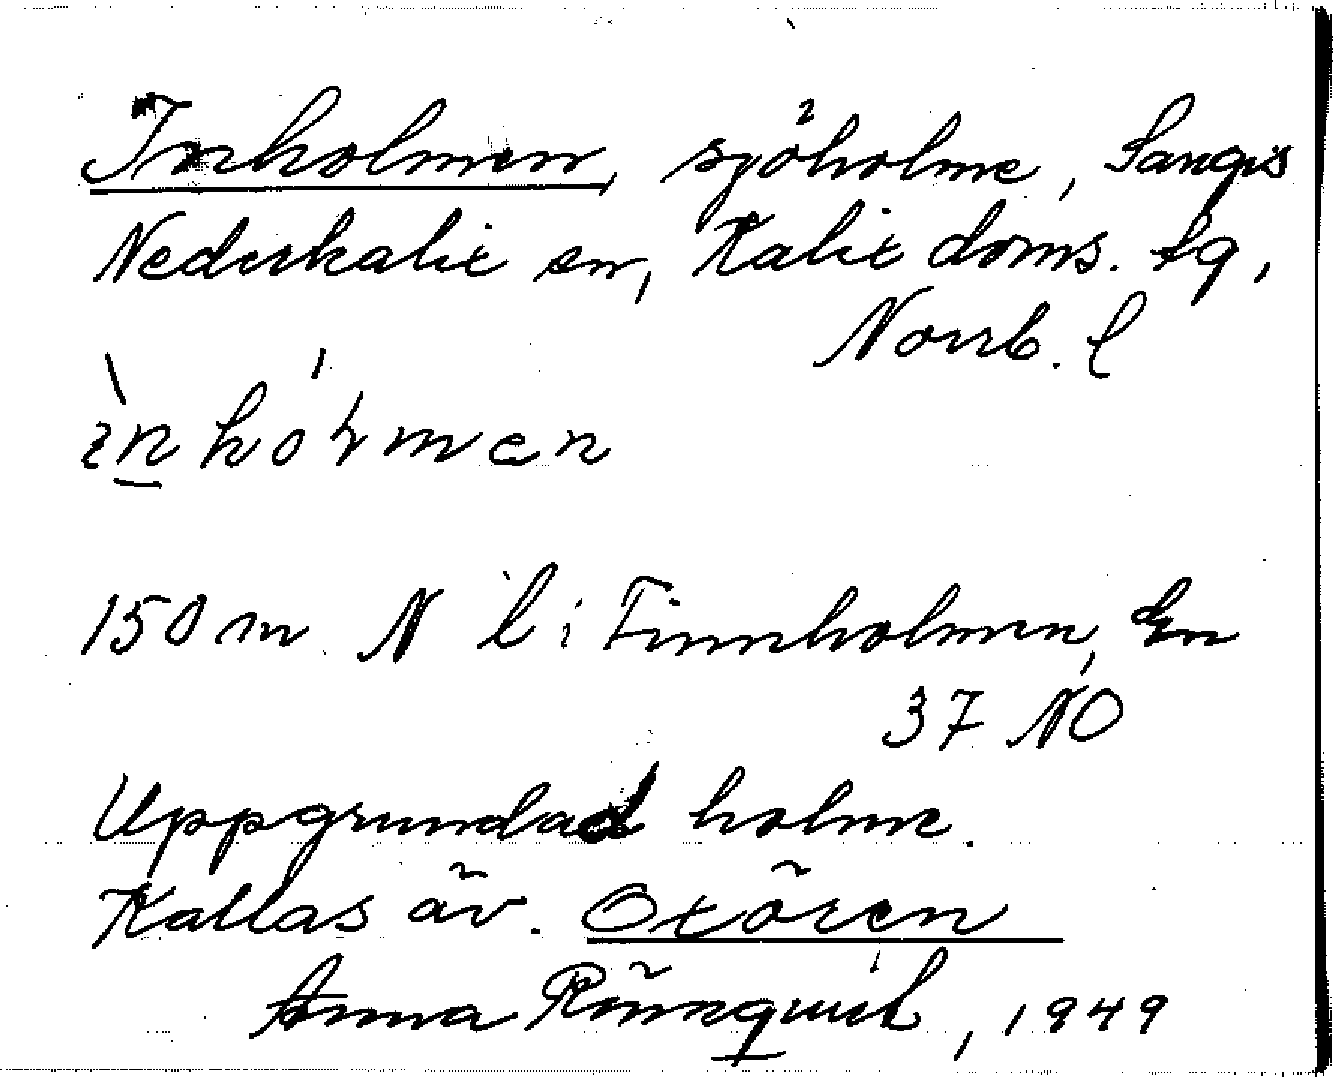 Inholmen, sjöholme, Sangis
Nederkalix sn, Kalix doms. tg,
Norrb. l
ìnhólmen
150 m N l i Finnholmen, En
37 NO
Uppgrundad holme.
Kallas äv. Oxören
Anna Rönnquist, 1949